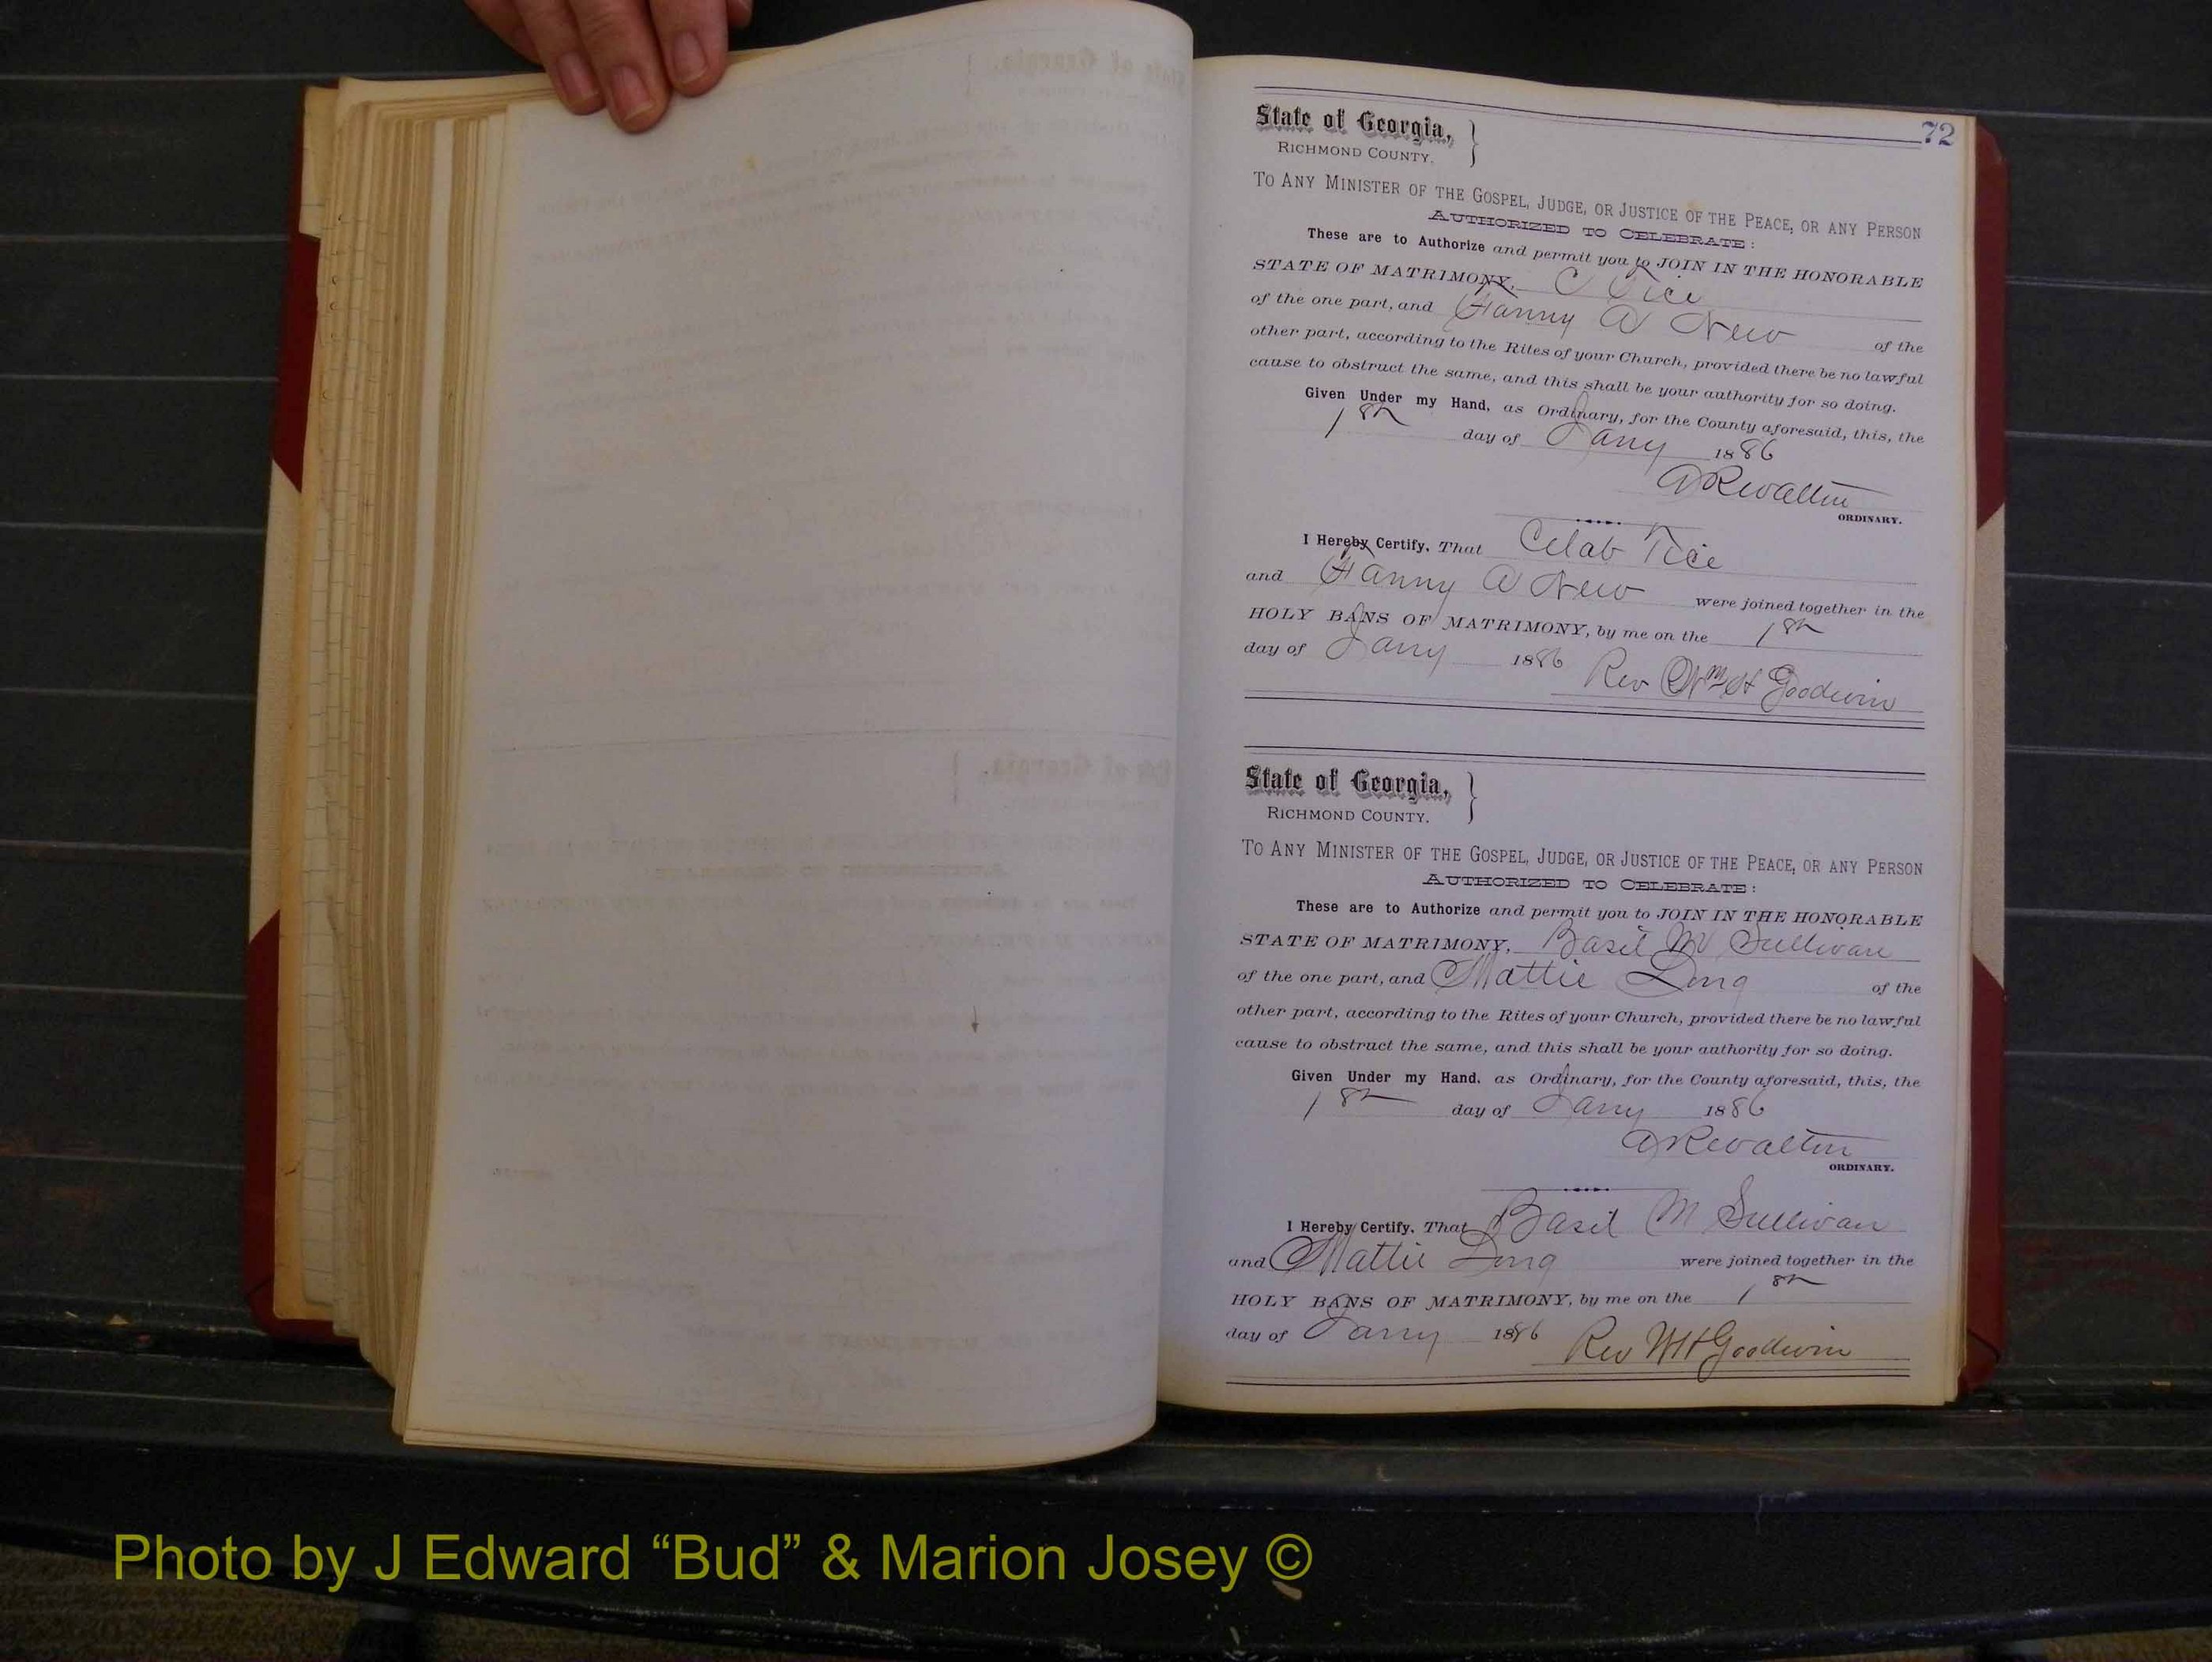 72
State of Georgia, }
RICHMOND COUNTY.
TO ANY MINISTER OF THE GOSPEL, JUDGE, OR JUSTICE OF THE PEACE, OR ANY PERSON
AUTHORIZED TO CELEBRATE:
These are to Authorize and permit you to JOIN IN THE HONORABLE
STATE OF MATRIMONY, C Tice
of the one part, and Fanny A New of the
other part, according to the Rites of your Church, provided there be no lawful
cause to obstruct the same, and this shall be your authority for so doing.
Given Under my Hand, as Ordinary, for the County aforesaid, this, the
day of Jany 1886
A R Walton
ORDINARY.
I Hereby Certify, That Celab Tice
and Fanny A New were joined together in the
HOLY BANS OF MATRIMONY, by me on the
day of Jany 1886 Rev Wm H Goodwin
State of Georgia, }
RICHMOND COUNTY.
TO ANY MINISTER OF THE GOSPEL, JUDGE, OR JUSTICE OF THE PEACE, OR ANY PERSON
AUTHORIZED TO CELEBRATE:
These are to Authorize and permit you to JOIN IN THE HONORABLE
STATE OF MATRIMONY, Basil M Sullivan
of the one part, and Mattie Long of the
other part, according to the Rites of your Church, provided there be no lawful
cause to obstruct the same, and this shall be your authority for so doing.
Given Under my Hand, as Ordinary, for the County aforesaid, this, the
day of Jany 1886
A R Walton
ORDINARY.
I Hereby Certify, That Basil M Sullivan
and Mattie Long were joined together in the
HOLY BANS OF MATRIMONY, by me on the
day of Jany 1886 Rev W H Goodwin
Photo by J Edward “Bud” & Marion Josey ©